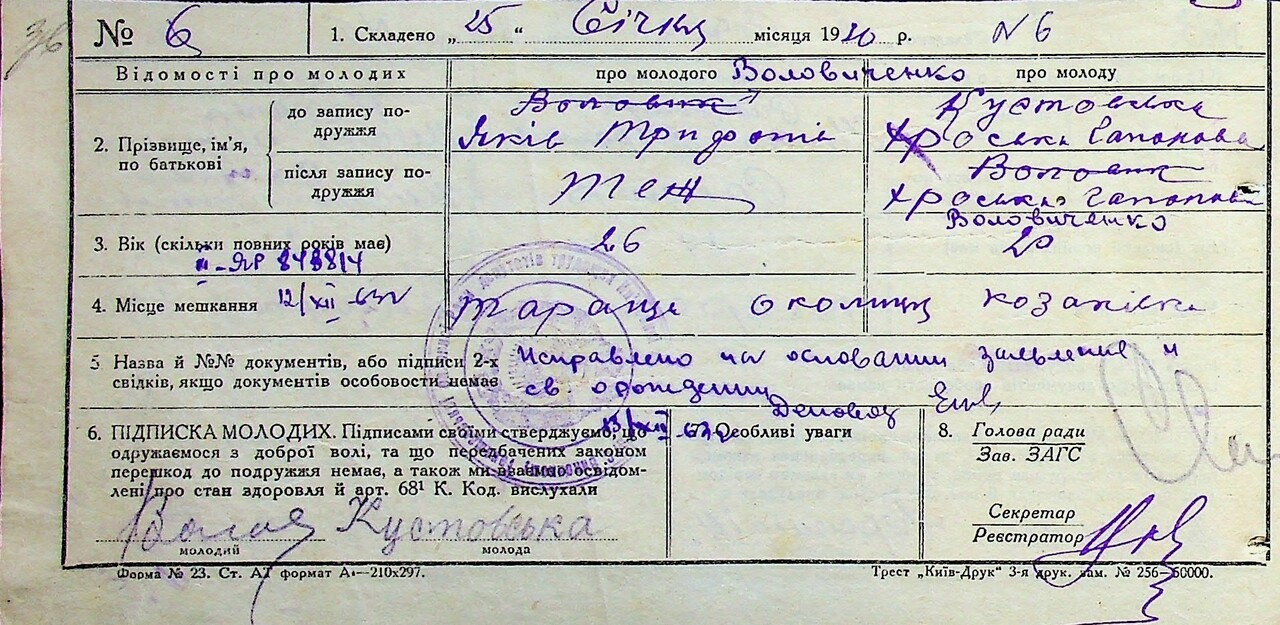 36
№ 6 1. Складено „ 25 “ Січня місяця 1930 р. N 6
Відомості про молодих про молодого Воловиченко про молоду
2. Прізвище, ім'я, по батькові
до запису по-
дружжя
Воловик
Яків Трифонів
Кустовська
Хроська Гапонова
після запису по-
дружжя
Теж
Воловик
Хроська Гапонова
Воловиченко
3. Вік (скільки повних років має) 26 20
II-ЯР 848814
4. Місце мешкання 12/XII 63г Тараща околиця козачівка
5 Назва й №№ документів, або підписи 2-х
свідків, якщо документів особовости немає
Исправлено на основании заявления и
св о рождении
13/XII-63г
6. ПІДПИСКА МОЛОДИХ. Підписами своїми стверджуємо, що
одружаємося з доброї волі, та що передбачених законом
перешкод до подружжя немає, а також ми взаємно освідом-
лені про стан здоров'я й арт. 68¹ К. Код. вислухали
Кустовська
молодий молода
7. Особливі уваги
8. Голова ради
Зав. ЗАГС
Секретар
Реєстратор
Форма № 23. Ст. А7 формат А4—210х297. Трест „Київ-Друк“ 3-я друк. зам. № 256—60000.